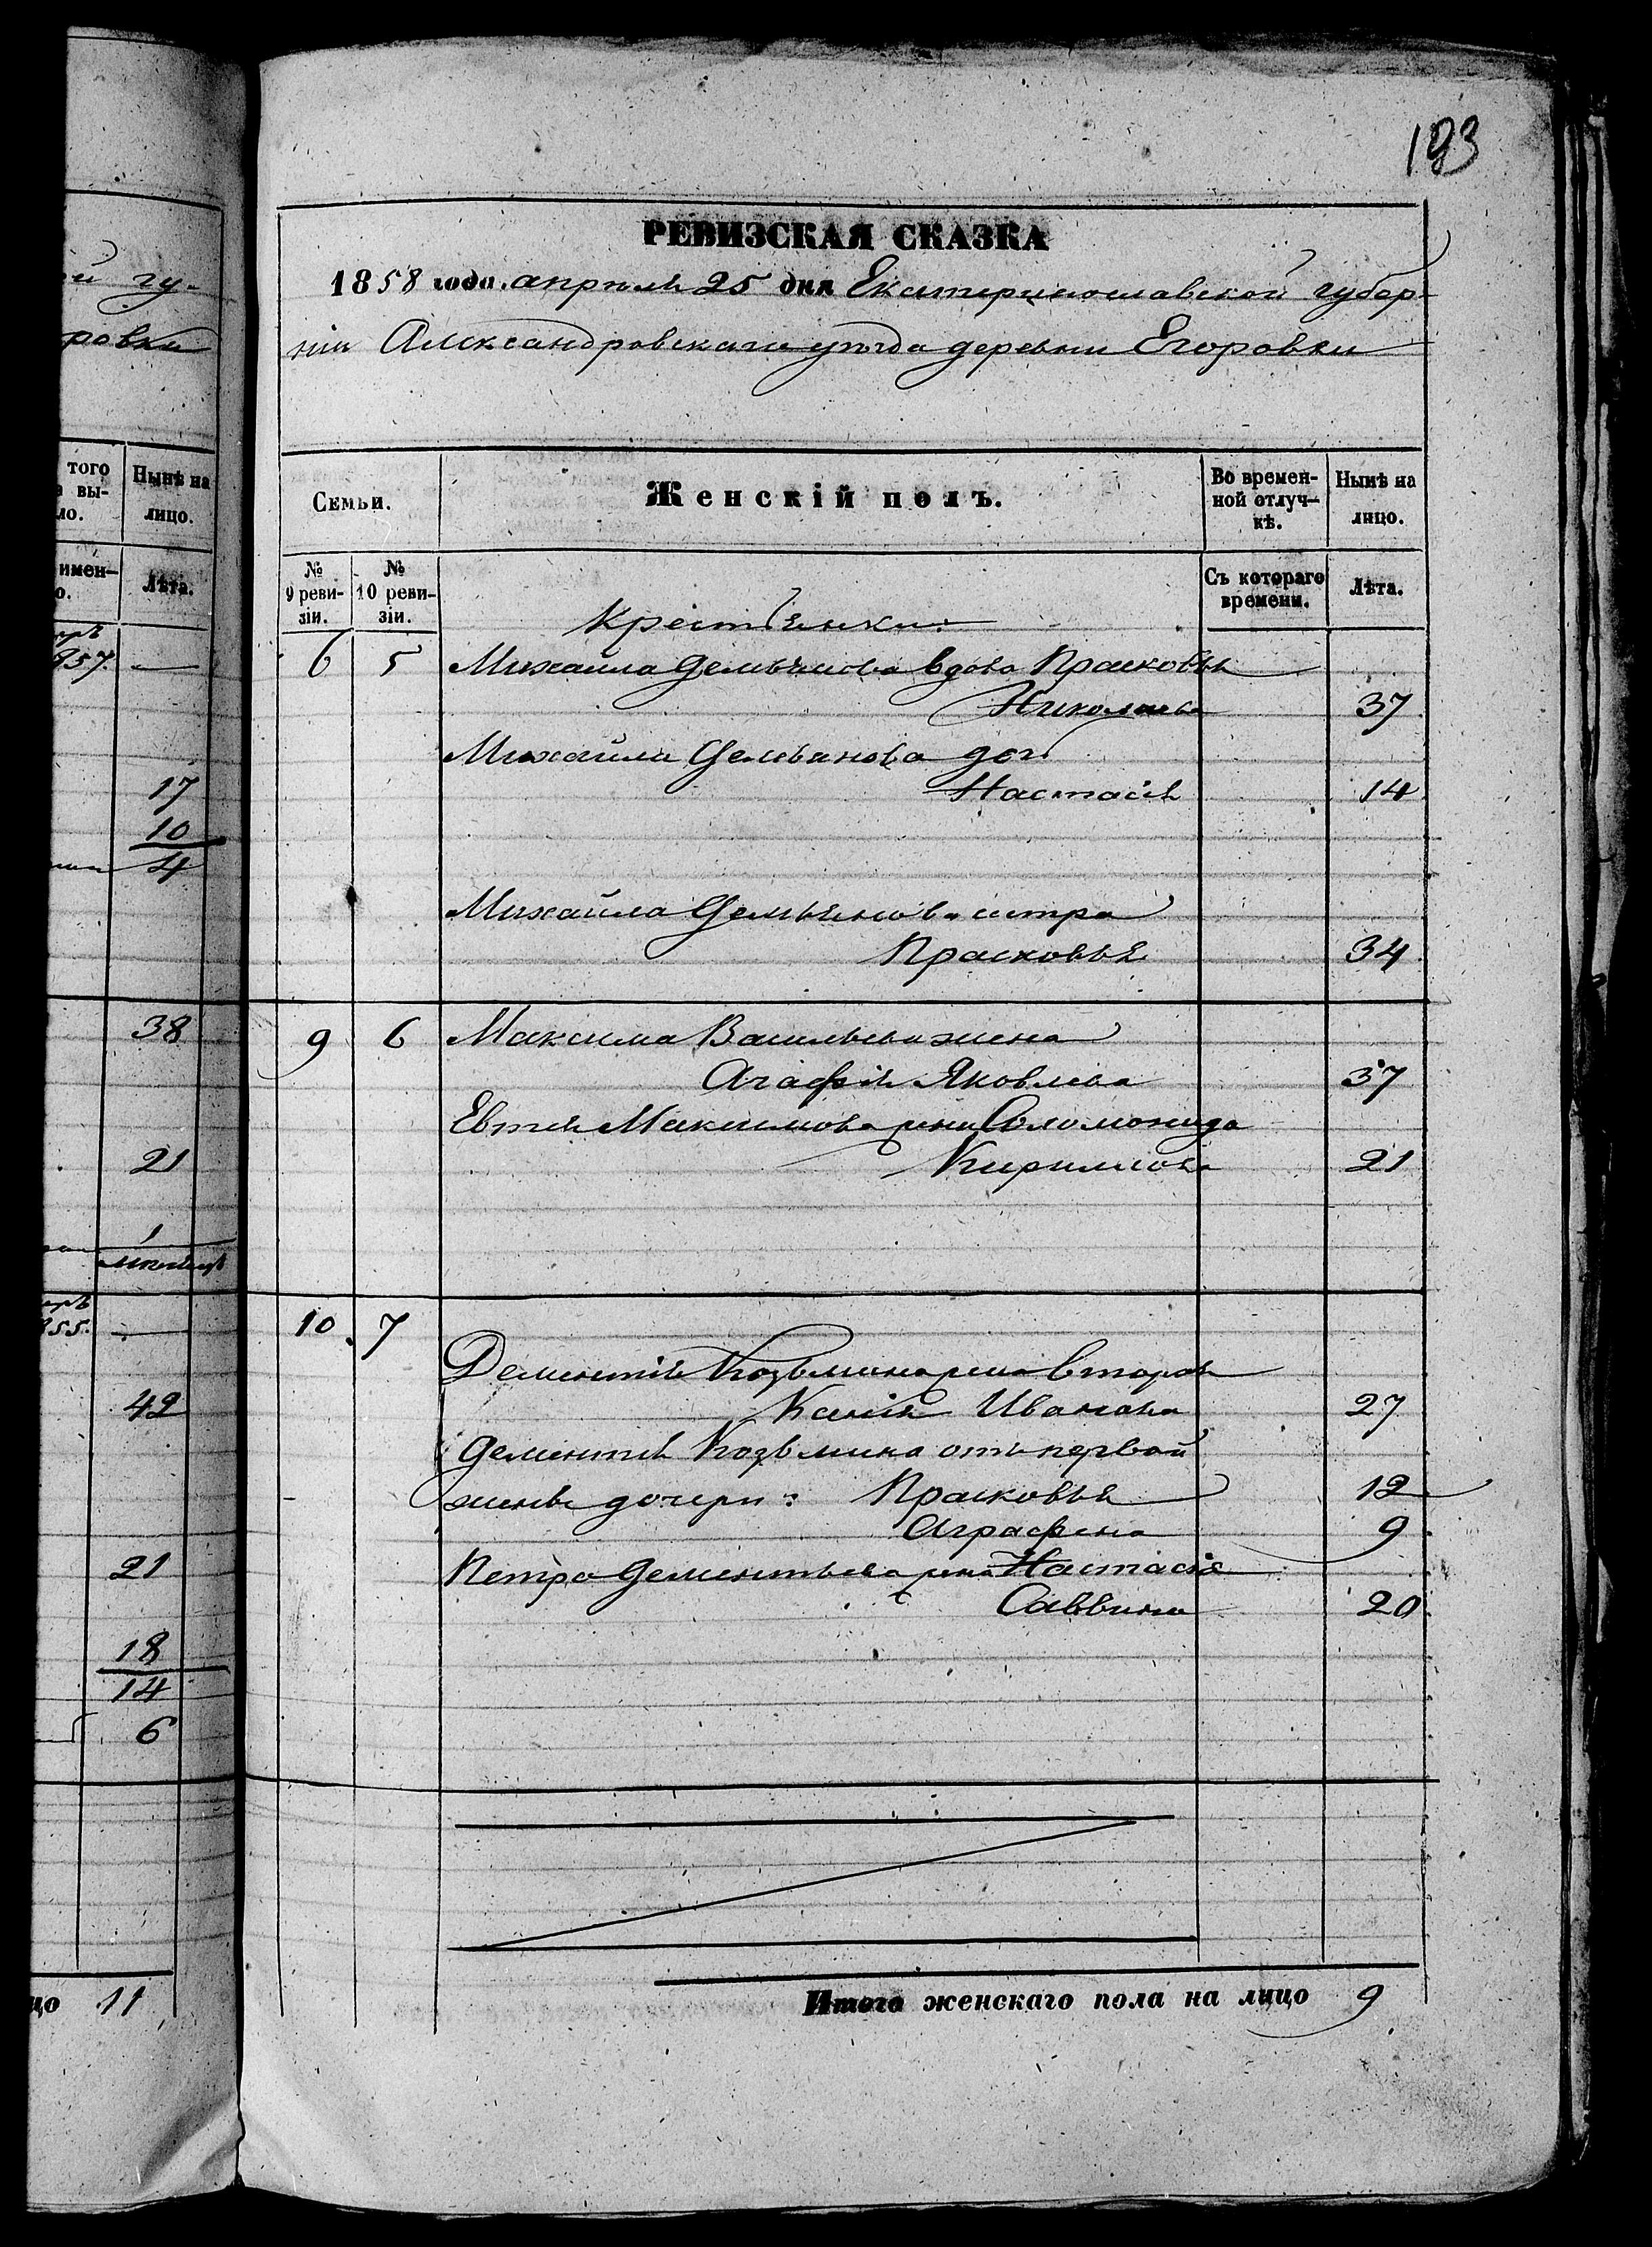 193
РЕВИЗСКАЯ СКАЗКА
1858 года апреля 25 дня Екатеринославской губер-
ніи Александровскаго уѣзда деревни Егоровки
Семьи.
Женскій полъ.
Во времен-
ной отлуч-
кѣ.
Нынѣ на
лицо.
№
9 реви-
зіи.
№
10 реви-
зіи.
Съ котораго
времени.
Лѣта.
Крестьянки:
6 5 Михайла Демьянова вдова Прасковья
Николаева 37
Михайла Демьянова дочь
Настасія 14
Михайла Демьянова сестра
Прасковья 34
9 6 Максима Васильева жена
Агафія Яковлева 37
Евтея Максимова жена Соломонида
Кирилова 21
10 7
Дементія Козьмина жена вторая
Ксенія Иванова 27
Дементія Козьмина отъ первой
жены дочери: Прасковья 12
Аграфена 9
Петра Дементьева жена Настасія
Саввина 20
Итого женскаго пола на лицо 9
й гу-
ровки
того
вы-
ло.
Нынѣ на
лицо.
имен-
о.
Лѣта.
857.
17
10
4
38
21
1
855.
42
21
18
14
6
цо 11